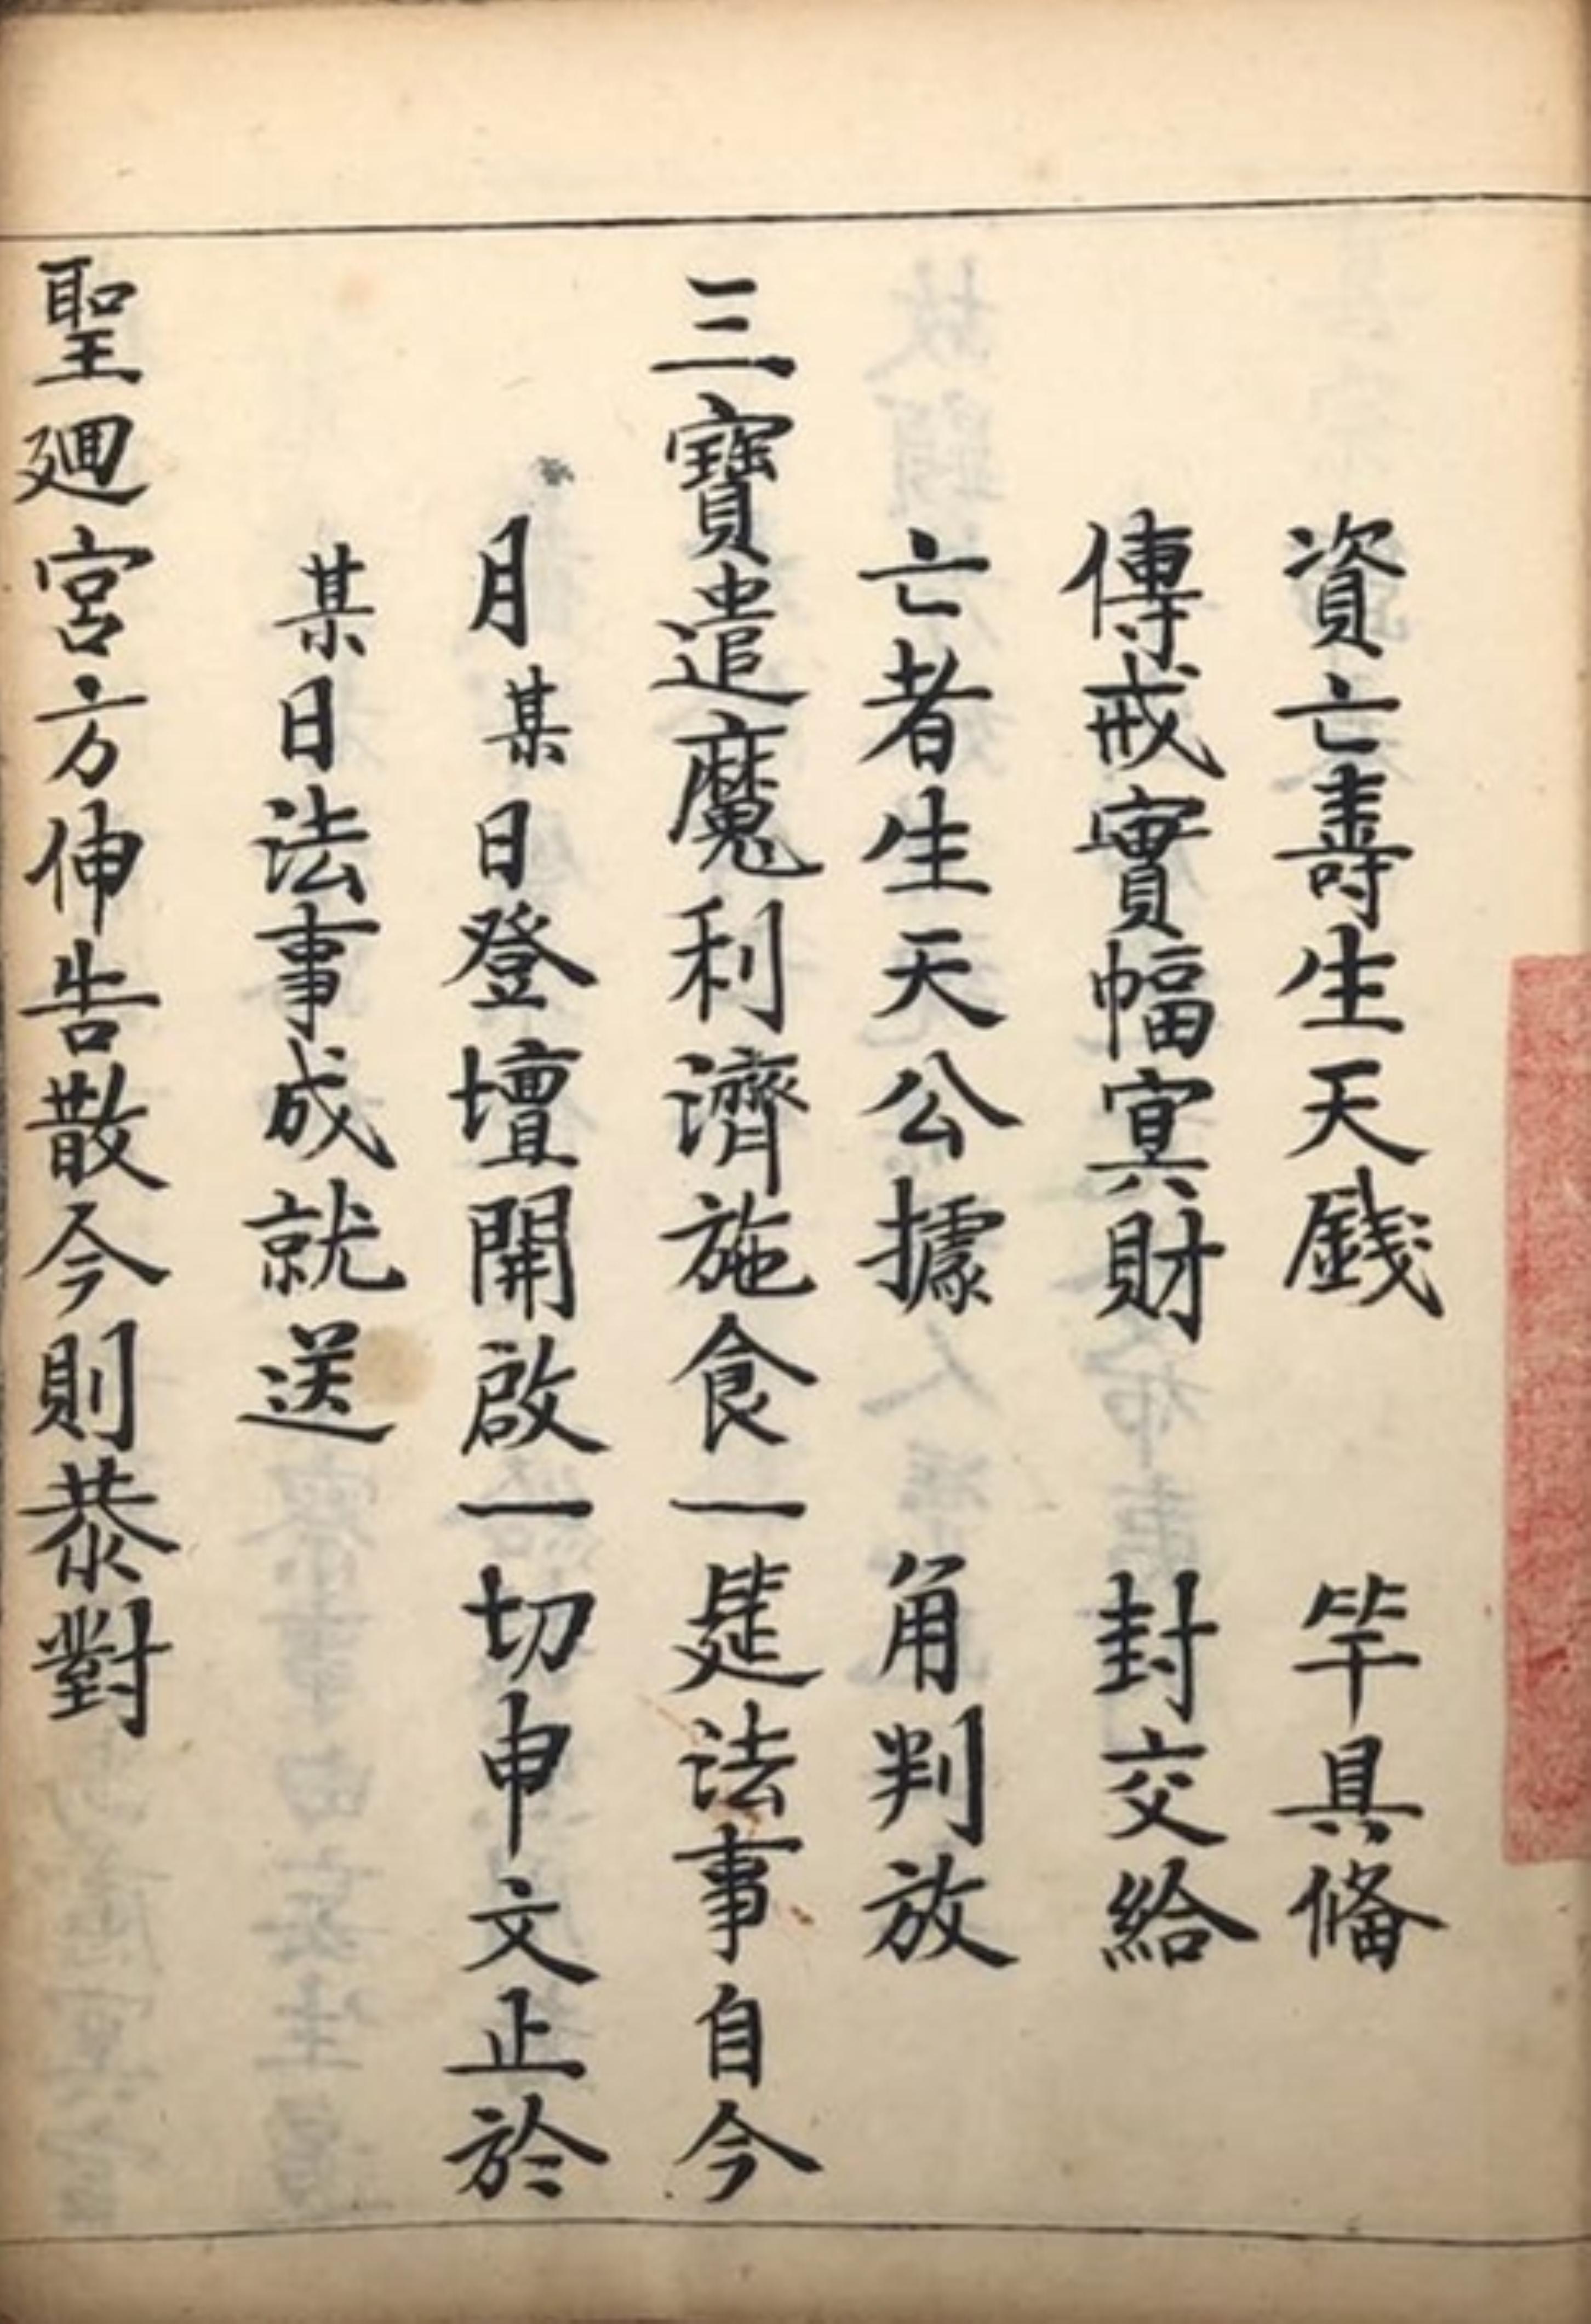 資亡壽生天錢 竿具俻
傳戒實幅㝠財 封交給
亡者生天公據 角判放
三寶遣魔利濟施食一筵法事自今
月某日登壇開啟一切申文止於
某日法事成就送
聖廻宮方伸告散今則恭對